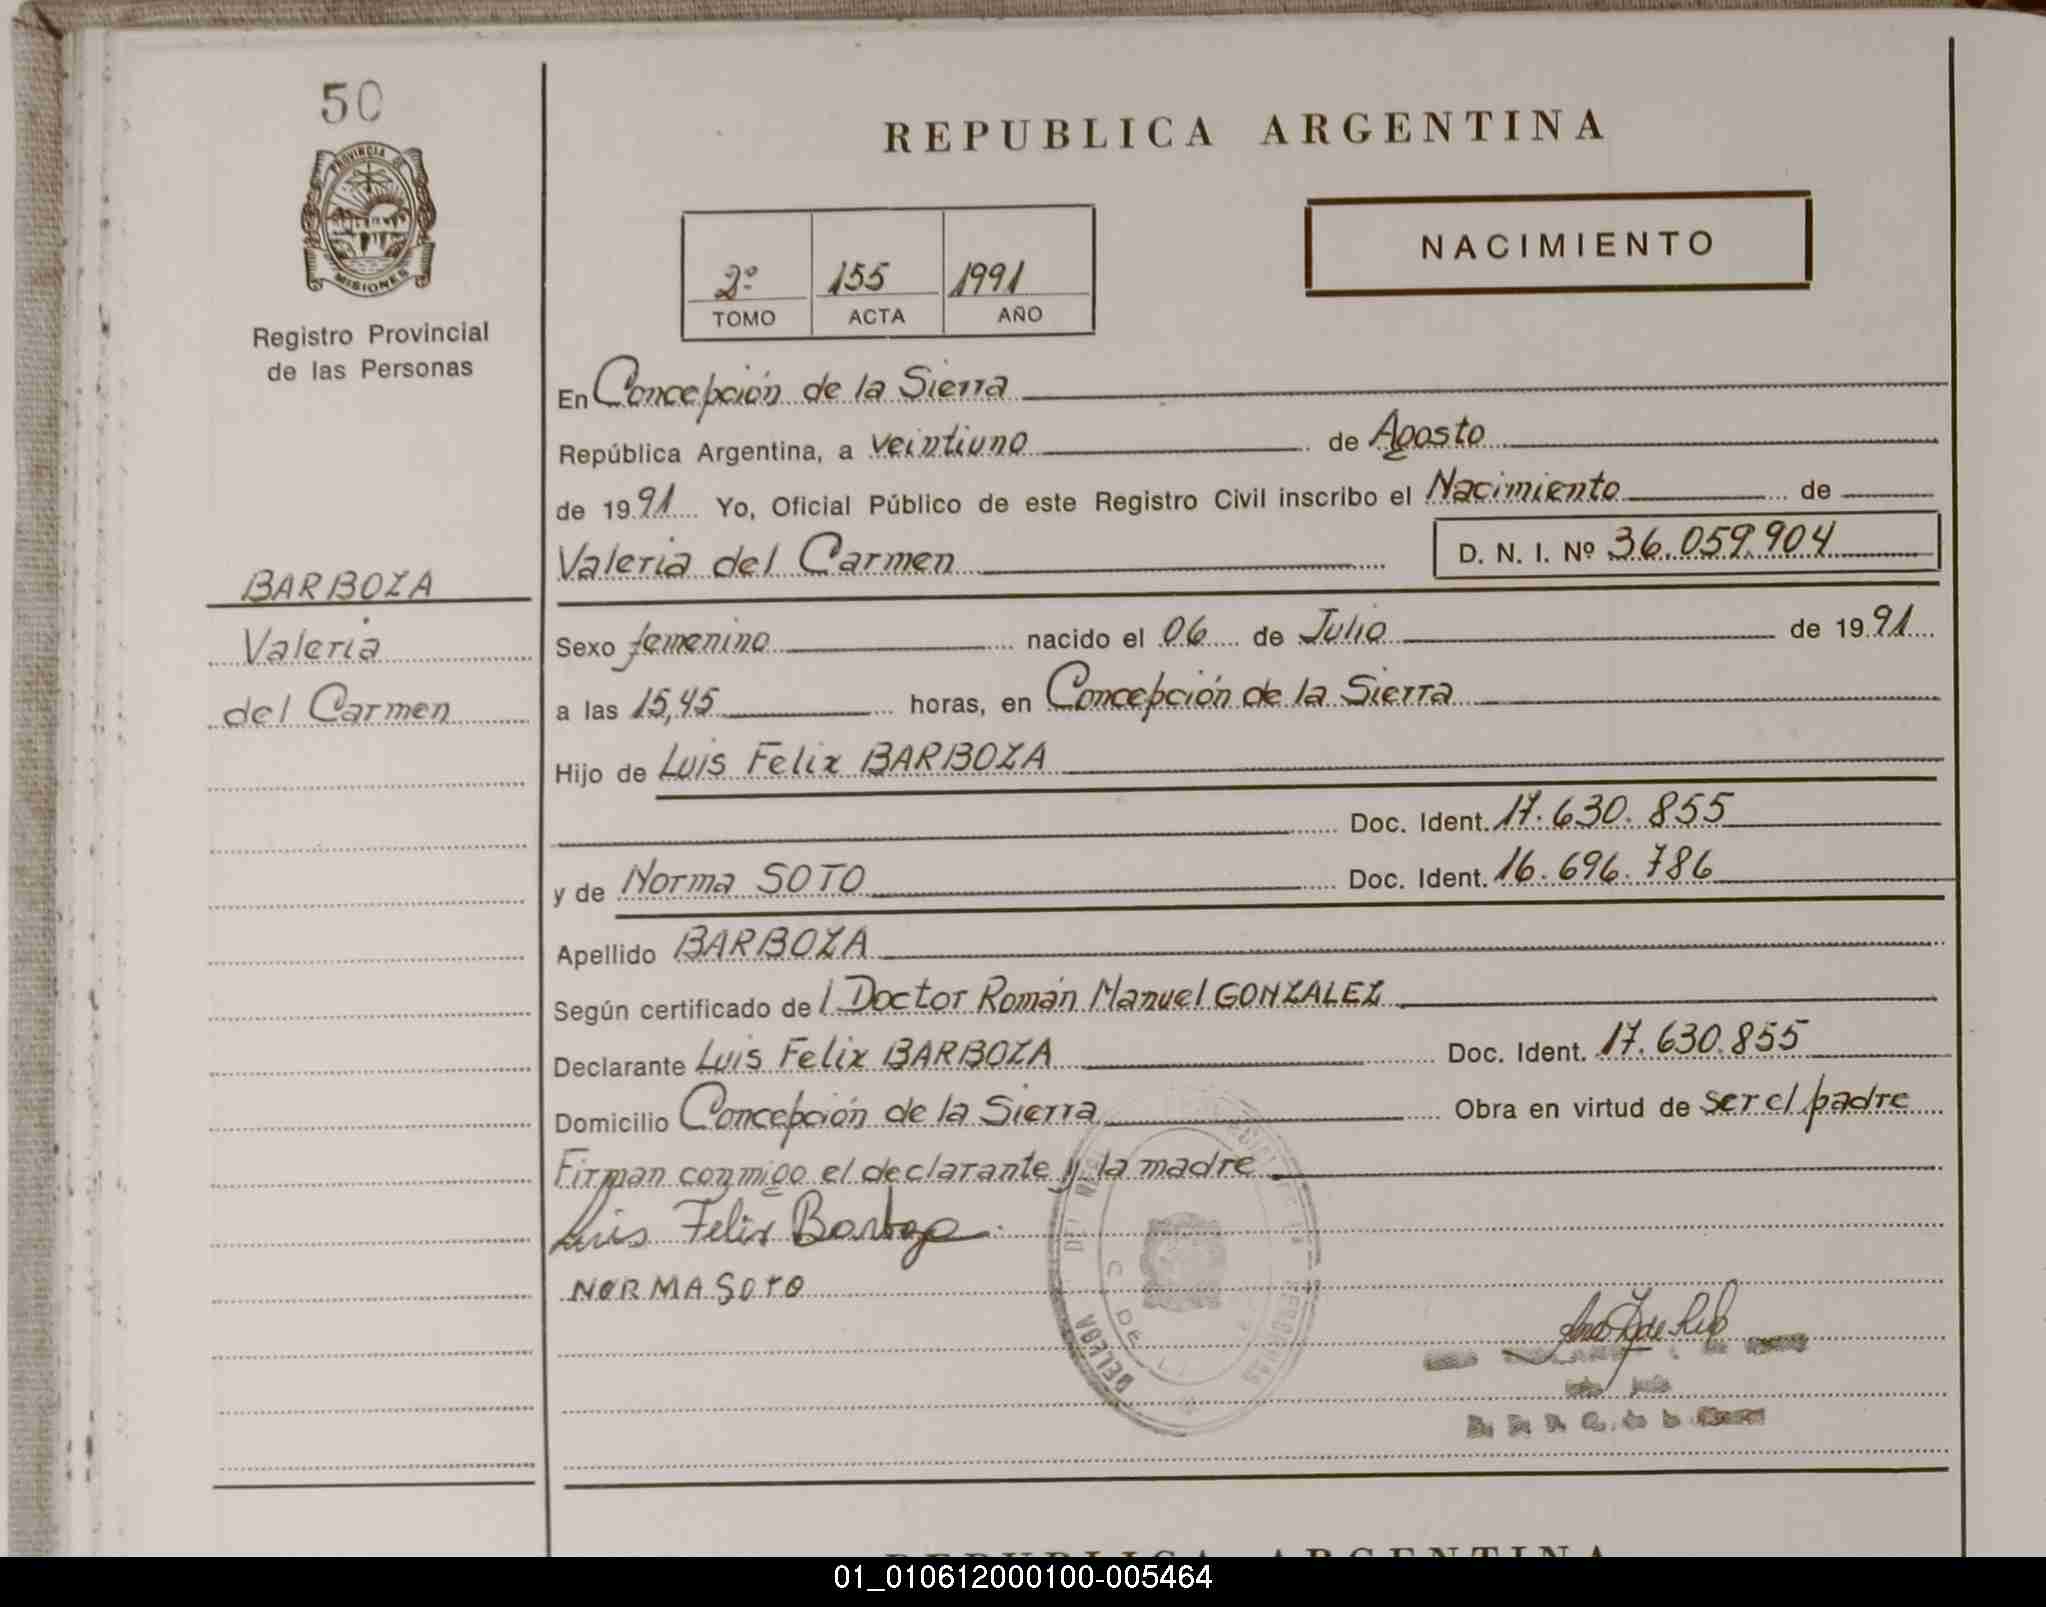 50
PROVINCIA DE
MISIONES
Registro Provincial
de las Personas
BARBOZA
Valeria
del Carmen
REPUBLICA ARGENTINA
NACIMIENTO
2º 155 1991
TOMO ACTA AÑO
En Concepción de la Sierra
República Argentina, a veintiuno de Agosto
de 1991 Yo, Oficial Público de este Registro Civil inscribo el Nacimiento de
Valeria del Carmen D. N. I. Nº 36.059.904
Sexo femenino nacido el 06 de Julio de 1991
a las 15,45 horas, en Concepción de la Sierra
Hijo de Luis Felix BARBOZA
Doc. Ident. 17.630.855
y de Norma SOTO Doc. Ident. 16.696.786
Apellido BARBOZA
Según certificado de l Doctor Román Manuel GONZALEZ
Declarante Luis Felix BARBOZA Doc. Ident. 17.630.855
Domicilio Concepción de la Sierra Obra en virtud de ser el padre
Firman conmigo el declarante y la madre
Luis Felix Barboza
NORMA SOTO
REPUBLICA ARGENTINA
01_010612000100-005464